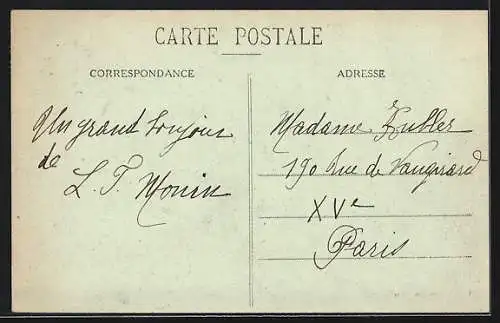 CARTE POSTALE
CORRESPONDANCE
ADRESSE
Un grand bonjour
de
L. T. Monin
Madame Kubler
190 Rue de Vaugirard
XVe
Paris